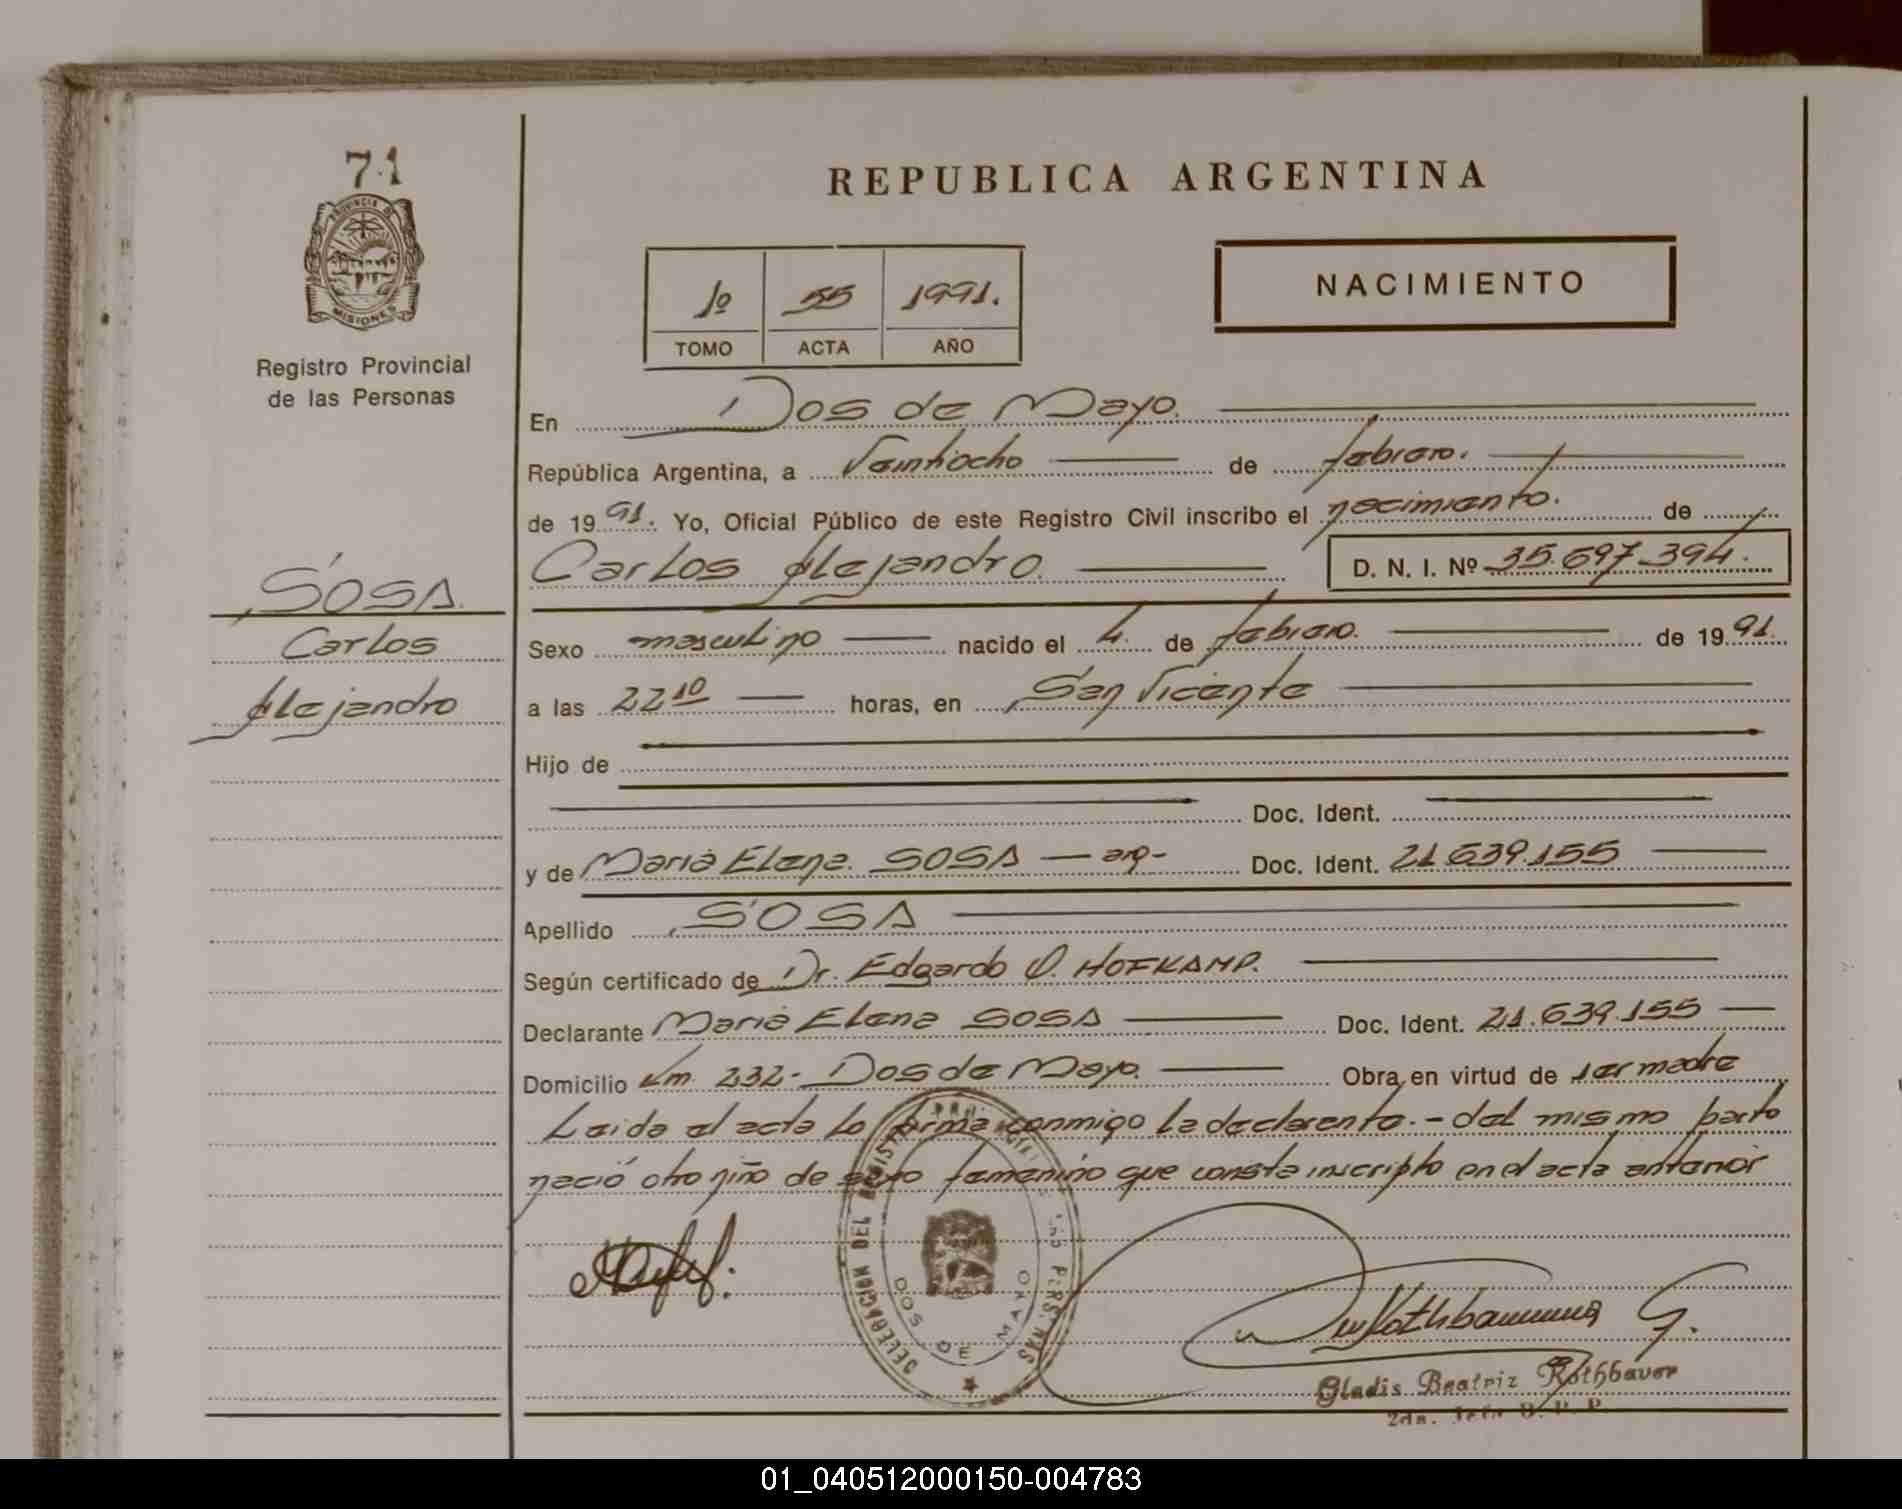 71
PROVINCIA DE
MISIONES
Registro Provincial
de las Personas
REPUBLICA ARGENTINA
1º 55 1991.
TOMO ACTA AÑO
NACIMIENTO
En Dos de Mayo.
República Argentina, a Veintiocho de febrero.
de 1991. Yo, Oficial Público de este Registro Civil inscribo el nacimiento. de
Carlos Alejandro. D. N. I. Nº 35.697.394.
SOSA.
Carlos
Alejandro
Sexo masculino nacido el 4. de febrero. de 1991.
a las 22 10 horas, en San Vicente
Hijo de
Doc. Ident.
y de Maria Elena. SOSA — arg- Doc. Ident. 21.639.155
Apellido SOSA
Según certificado de Dr. Edgardo O. HOFKAMP.
Declarante Maria Elena SOSA Doc. Ident. 21.639.155
Domicilio Km. 232- Dos de Mayo. Obra en virtud de ser madre
Leida el acta lo firma conmigo la declarante.- del mismo parto
nació otro niño de sexo femenino que consta inscripto en el acta anterior
DELEGACION DEL REGISTRO PERSONAS
DOS DE MAYO
Rothbauer G.
Gladis Beatriz Rothbauer
2da. Jefe R. P. P.
01_040512000150-004783